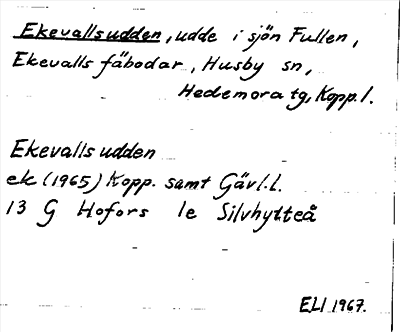 Ekevallsudden, udde i sjön Fullen,
Ekevalls fäbodar, Husby sn,
Hedemora tg, Kopp.l.
Ekevallsudden
ek (1965) Kopp. samt Gävl.l.
13 G Hofors 1e Silvhytteå
ELI 1967.